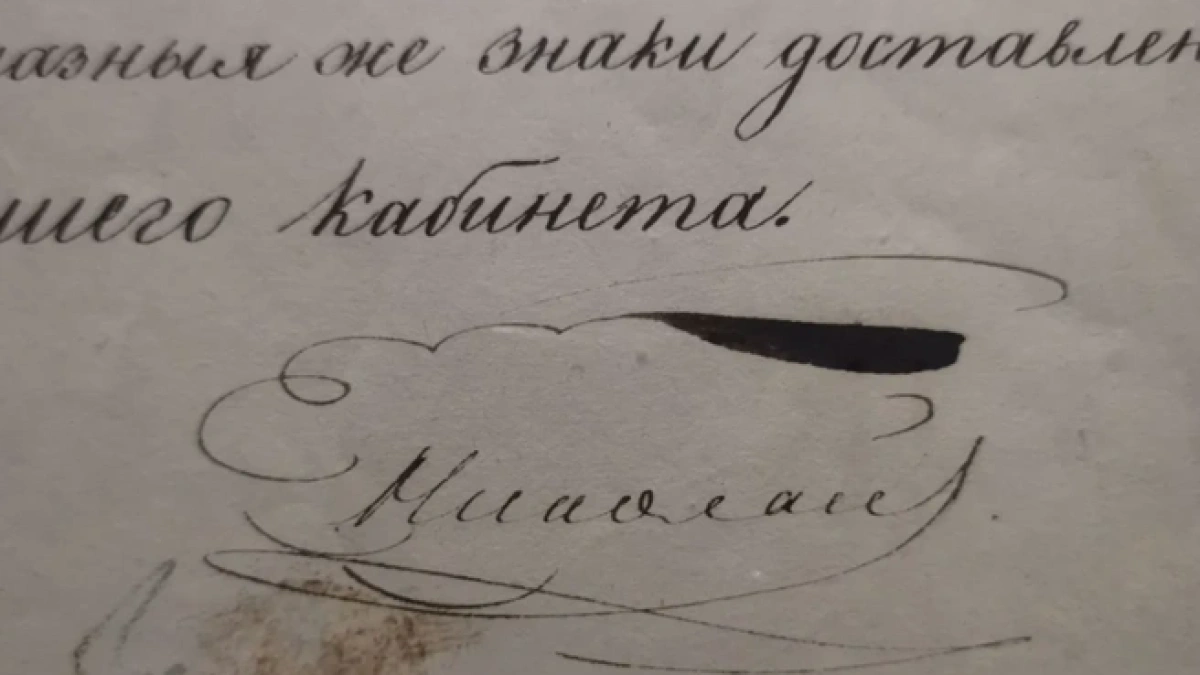 лазныя же знаки доставлен
шего кабинета.
Николай.